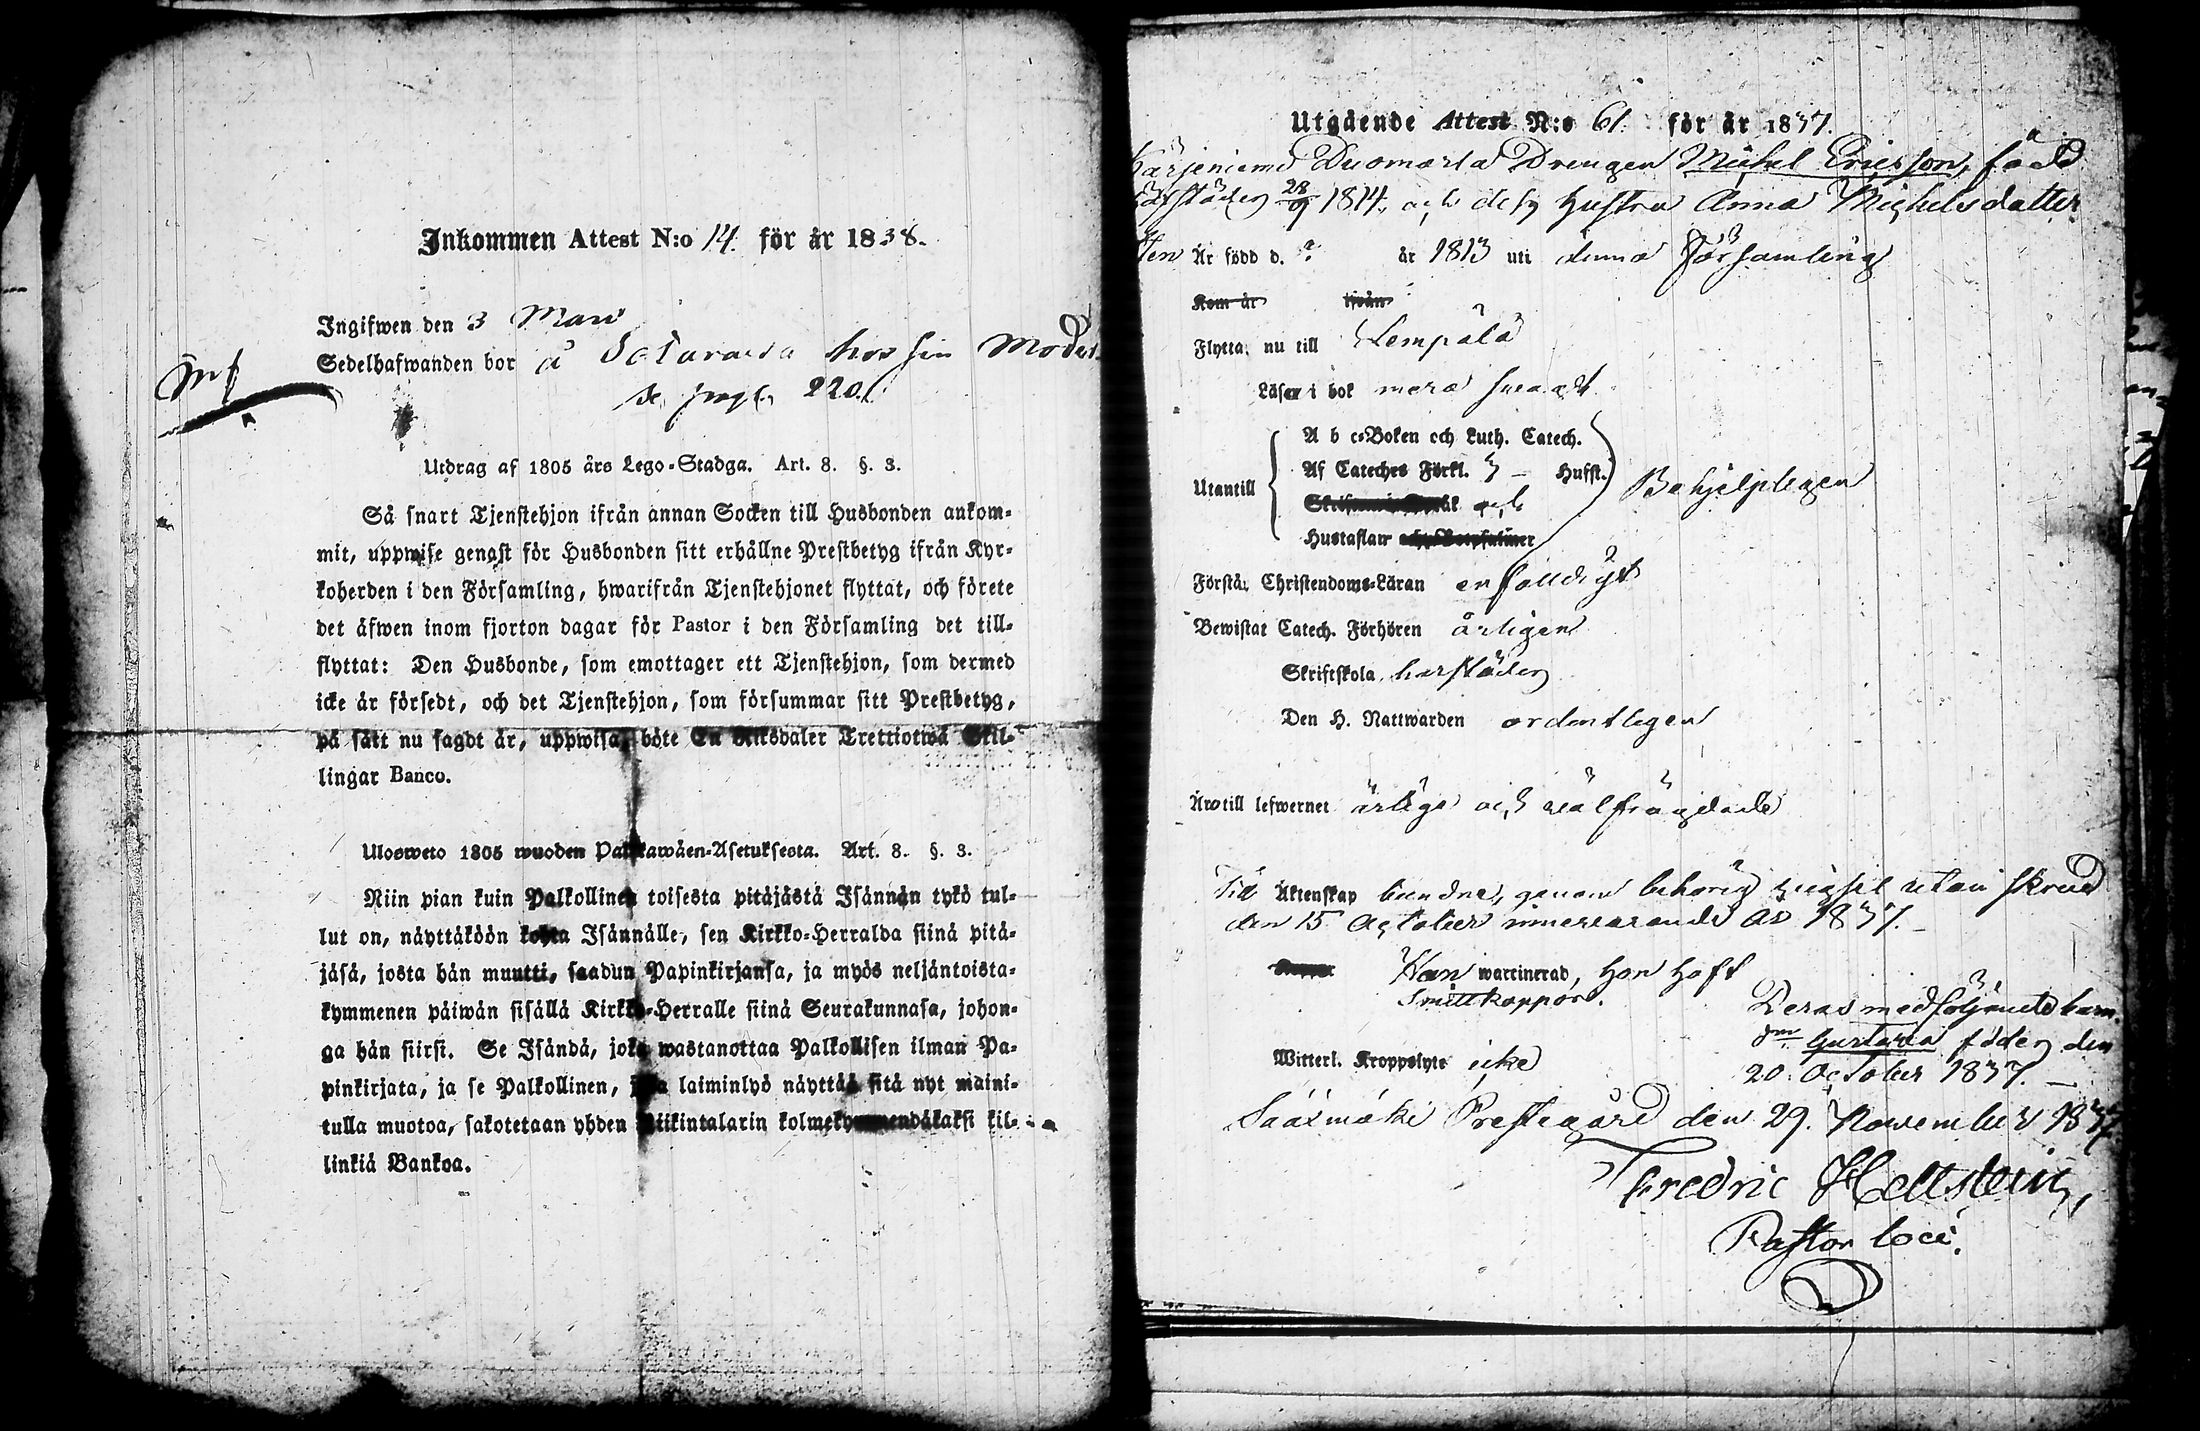 Inkommen Attest N:o 14. för år 1838.
Ingifwen den 3 Mars
Sedelhafwanden bor å hos sin Moder
220.
Utdrag af 1805 års Lego-Stadga. Art. 8. §. 3.
Så snart Tjenstehjon ifrån annan Socken till Husbonden ankom-
mit, uppwise genast för Husbonden sitt erhållne Prestbetyg ifrån Kyr-
koherden i den Församling, hwarifrån Tjenstehjonet flyttat, och förete
det äfwen inom fjorton dagar för Pastor i den Församling det till-
flyttat: Den Husbonde, som emottager ett Tjenstehjon, som dermed
icke är försedt, och det Tjenstehjon, som försummar sitt Prestbetyg,
på sätt nu sagdt är, uppwisa, böte En Riksdaler Trettiotwå Skil-
lingar Banco.
Ulosweto 1805 wuoden Palkkawäen-Asetuksesta. Art. 8. §. 3.
Niin pian kuin Palkollinen toisesta pitäjästä Isännän tykö tul-
lut on, näyttäköön kohta Isännälle, sen Kirkko-Herralda siinä pitä-
jäsä, josta hän muutti, saadun Papinkirjansa, ja myös neljäntoista-
kymmenen päiwän sisällä Kirkko-Herralle siinä Seurakunnasa, johon-
ga hän siirsi. Se Isändä, joka wastanottaa Palkollisen ilman Pa-
pinkirjata, ja se Palkollinen, joka laiminlyö näyttää sitä nyt maini-
tulla muotoa, sakotetaan yhden Riikintalarin kolmekymmendäkaksi kil-
linkiä Bankoa.
Utgående Attest N:o 61. för år 1837.
Kärjeniemi Duomarla Drengen Michel Ericsson, född
härstädes 28/9 1814, och dess hustru Anna Michelsdotter
Är född d. ? år 1813 uti denna Församling
Kom år ifrån
Flytta nu till Lempälä
Läser i bok mera swagt
A b c-Boken och Luth. Catech.
Af Cateches Förkl. 3 – Hufst.
Utantill Behjelpligen
och
Hustaflan
Förstå Christendoms-Läran enfalldigt
Bewistat Catech. Förhören årligen
Skriftskola härstädes
Den H. Nattwarden ordentligen
Äro till lefwernet ärlige och wälfrägdade
Till Äktenskap bundne, genom behörig wigsel utan skrud
den 15 October innewarande år 1837.
Han waccinerad, hon haft
Smittkoppor.
Deras medföljande barn
Gustava födes den
20 October 1837. –
Witterl. Kroppslyte icke
Sääxmäki Prestegård den 29. November 1837
Fredric Hellstein,
Pastor loci.